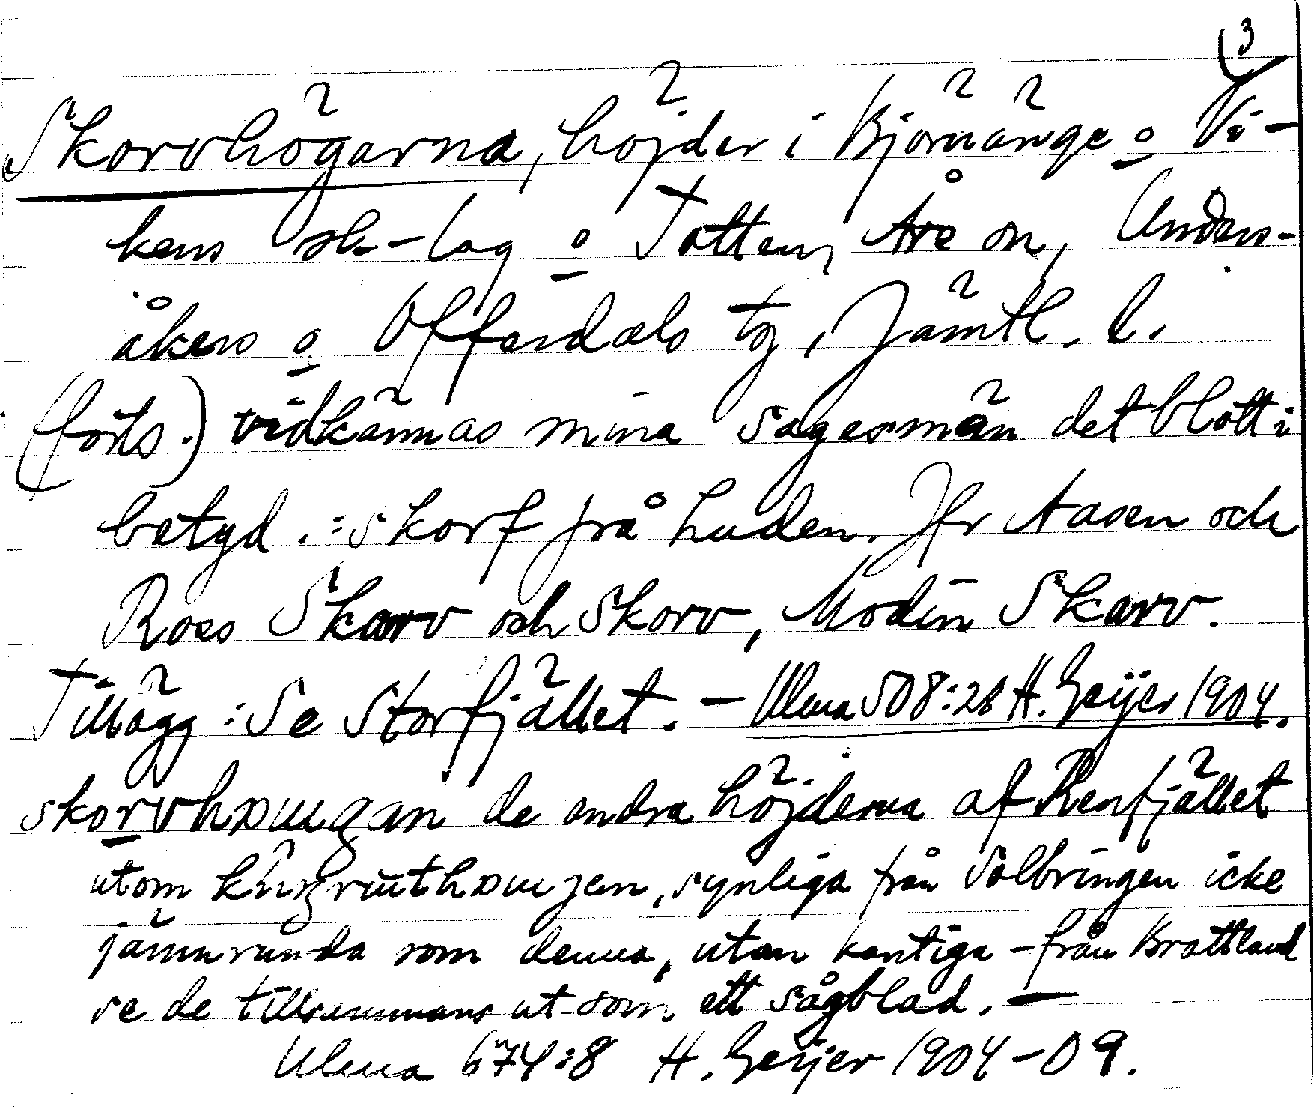 3
Skorvhögarna, höjder i Björnänge o Vi-
kens sk-lag o Totten, Åre sn, Unders-
åkers o Offerdals tg, Jämtl. l.
(forts.) vidkännas mina sagesmän det blott i
betyd. : skorf från huden. Jfr Aasen och
Ross Skarv och Skorv, Modin Skarv.
Tillägg : Se Storfjället. – Ulma 508:26 H. Geijer 1904.
de andra höjderna af Renfjället
utom synliga från Solbringen icke
jämnrunda som denna, utan kantiga – från Brattland
se de tillsammans ut som ett sågblad. –
Ulma 674:8 H. Geijer 1904–09.